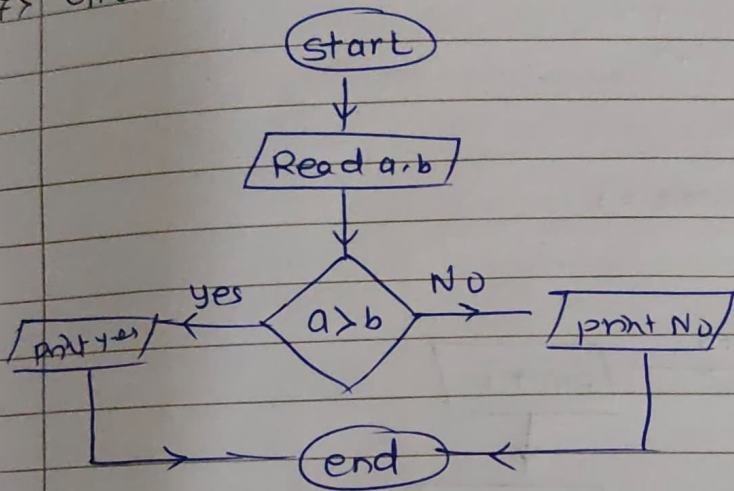 start
Read a,b
yes
No
a>b
print yes
print No
end